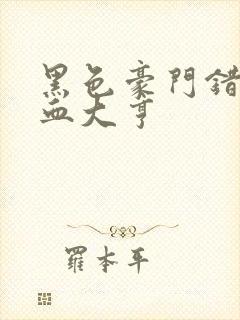 黑色豪門錯
血大亨
羅本平